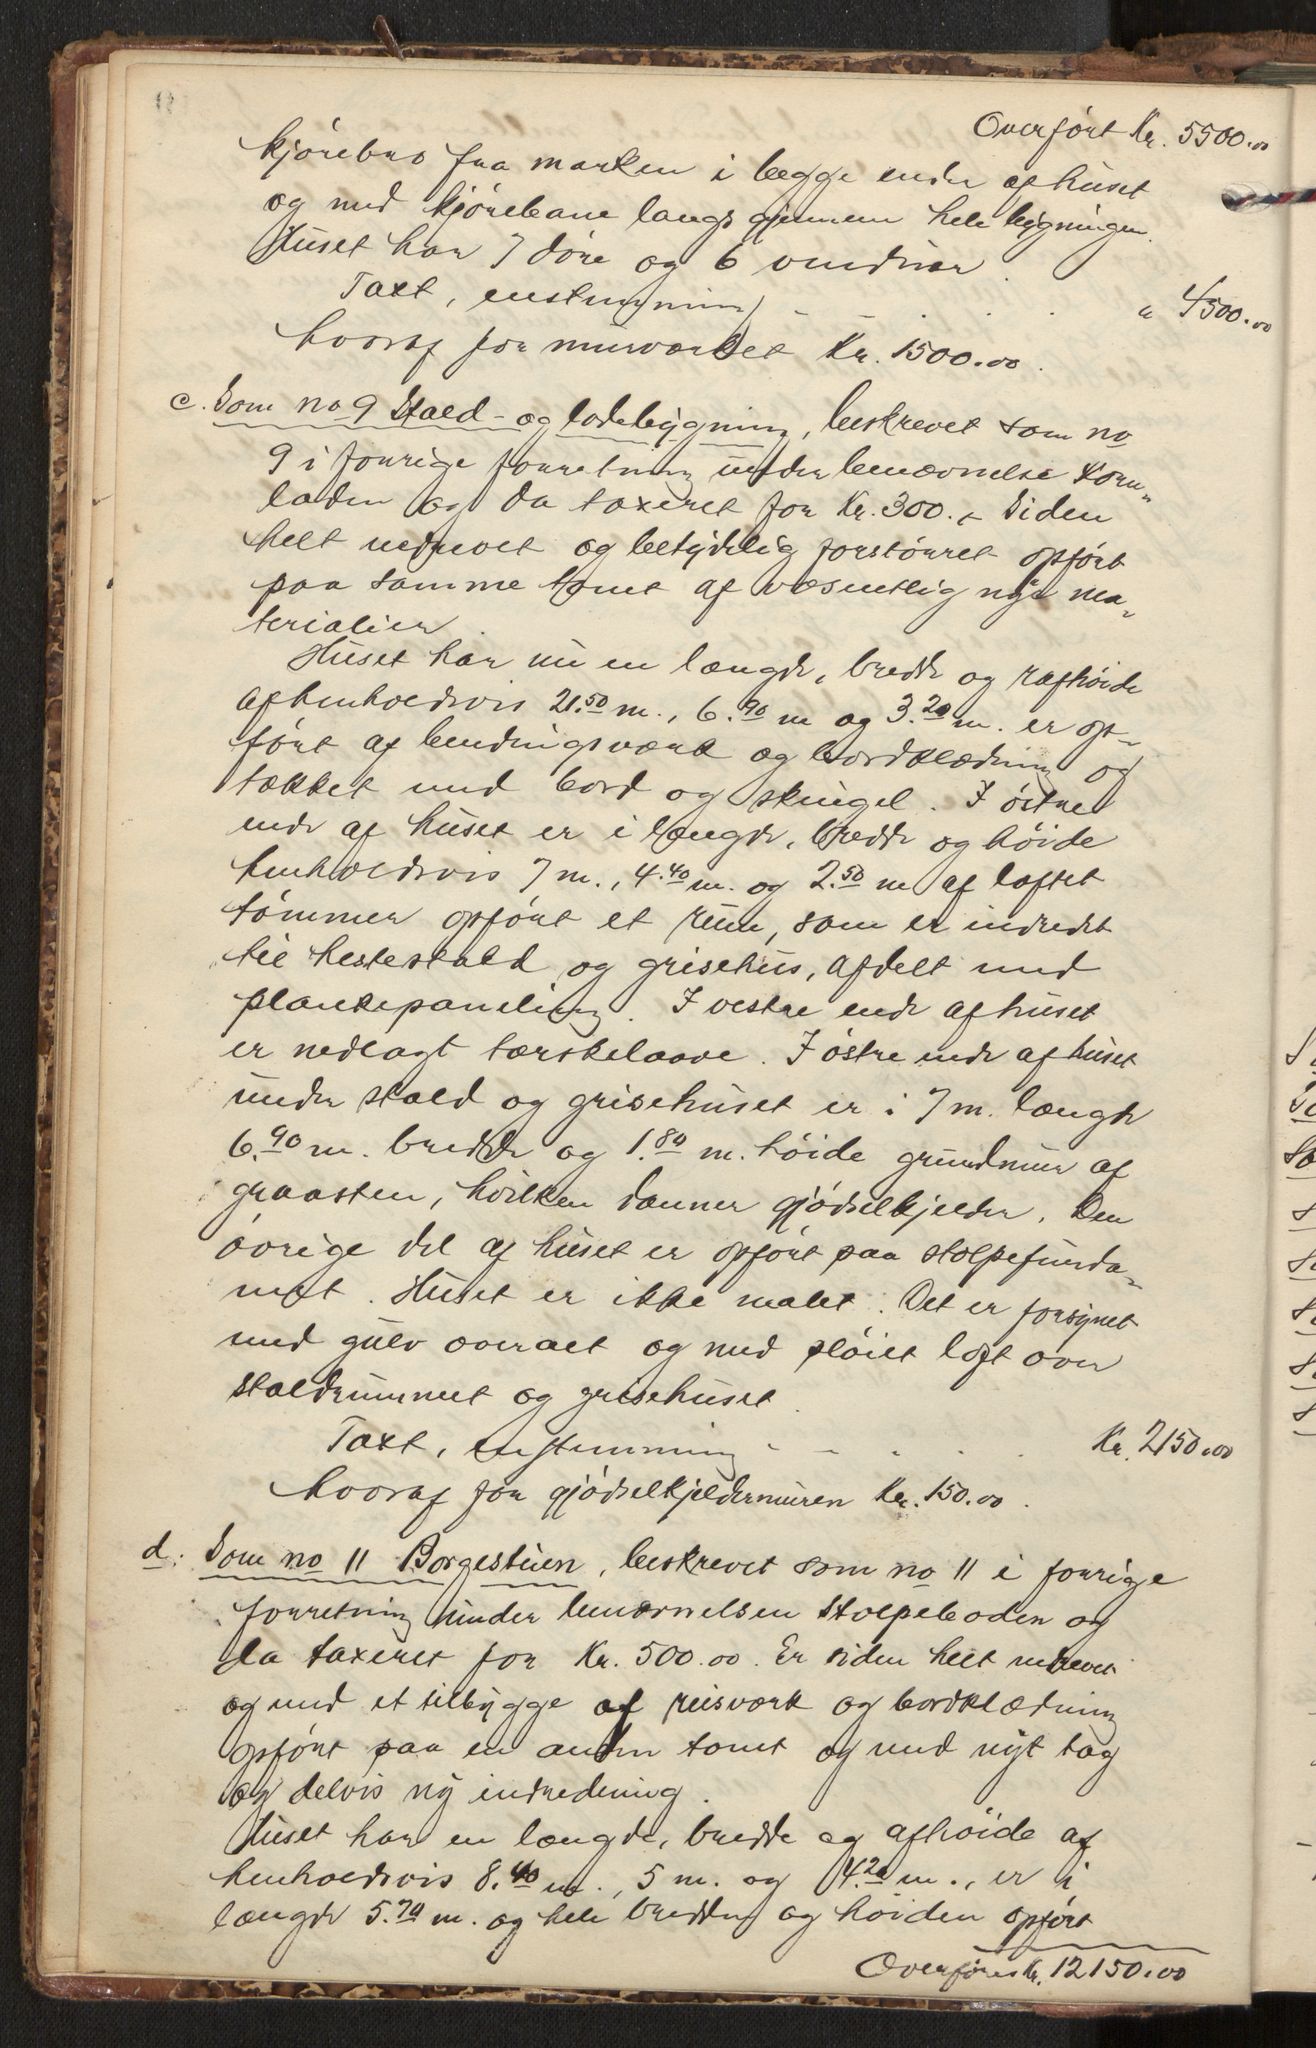 Overført Kr. 5500.00
kjørebro fra marken i begge ender af huset
og med kjørebane langs gjennem hele bygningen.
Huset har 7 døre og 6 vinduer.
Taxt, enstemmig - - . . . " 4500.00
hvoraf for murværket Kr. 1500.00.
c. Som no 9 Stald- og ladebygning, beskrevet som no
9 i forrige forretning under benævnelse Korn-
laden og da taxeret for Kr. 300. - Siden
helt nedrevet og betydelig forstørret opført
paa samme tomt af væsentlig nye ma-
terialier.
Huset har nu en længde, bredde og rafthøide
af henholdsvis 21.50 m., 6.90 m og 3.20 m. er op-
ført af bindingsværk og bordklædning og
tækket med bord og skingel. I østre
ende af huset er i længde, bredde og høide
henholdsvis 7 m., 4.40 m. og 2.50 m af laftet
tømmer opført et rum, som er indredet
til hestestald og grisehus, afdelt med
plankepaneling. I vestre ende af huset
er nedlagt tærskelaave. I østre ende af huset
under stald og grisehuset er i 7 m. længde
6.90 m. bredde og 1.80 m. høide grundmur af
graasten, hvilken danner gjødselkjelder. Den
øvrige del af huset er opført paa stolpefunda-
ment. Huset er ikke malet. Det er forsynet
med gulv overalt og med pløiet loft over
staldrummet og grisehuset.
Taxt, enstemmig - - . . . Kr. 2150.00
hvoraf for gjødselkjeldermuren Kr. 150.00.
d. Som no 11 Borgestuen, beskrevet som no 11 i forrige
forretning under benævnelsen Stolpeboden og
da taxeret for Kr. 500.00. Er siden helt nedrevet
og med et tilbygge af reisværk og bordklædning
opført paa en anden tomt og med nyt tag
og delvis ny indredning.
Huset har en længde, bredde og afhøide af
henholdsvis 8.40 m., 5 m. og 4.20 m., er i
længde 5.70 m. og hele bredden og høiden opført
Overføres Kr. 12150.00